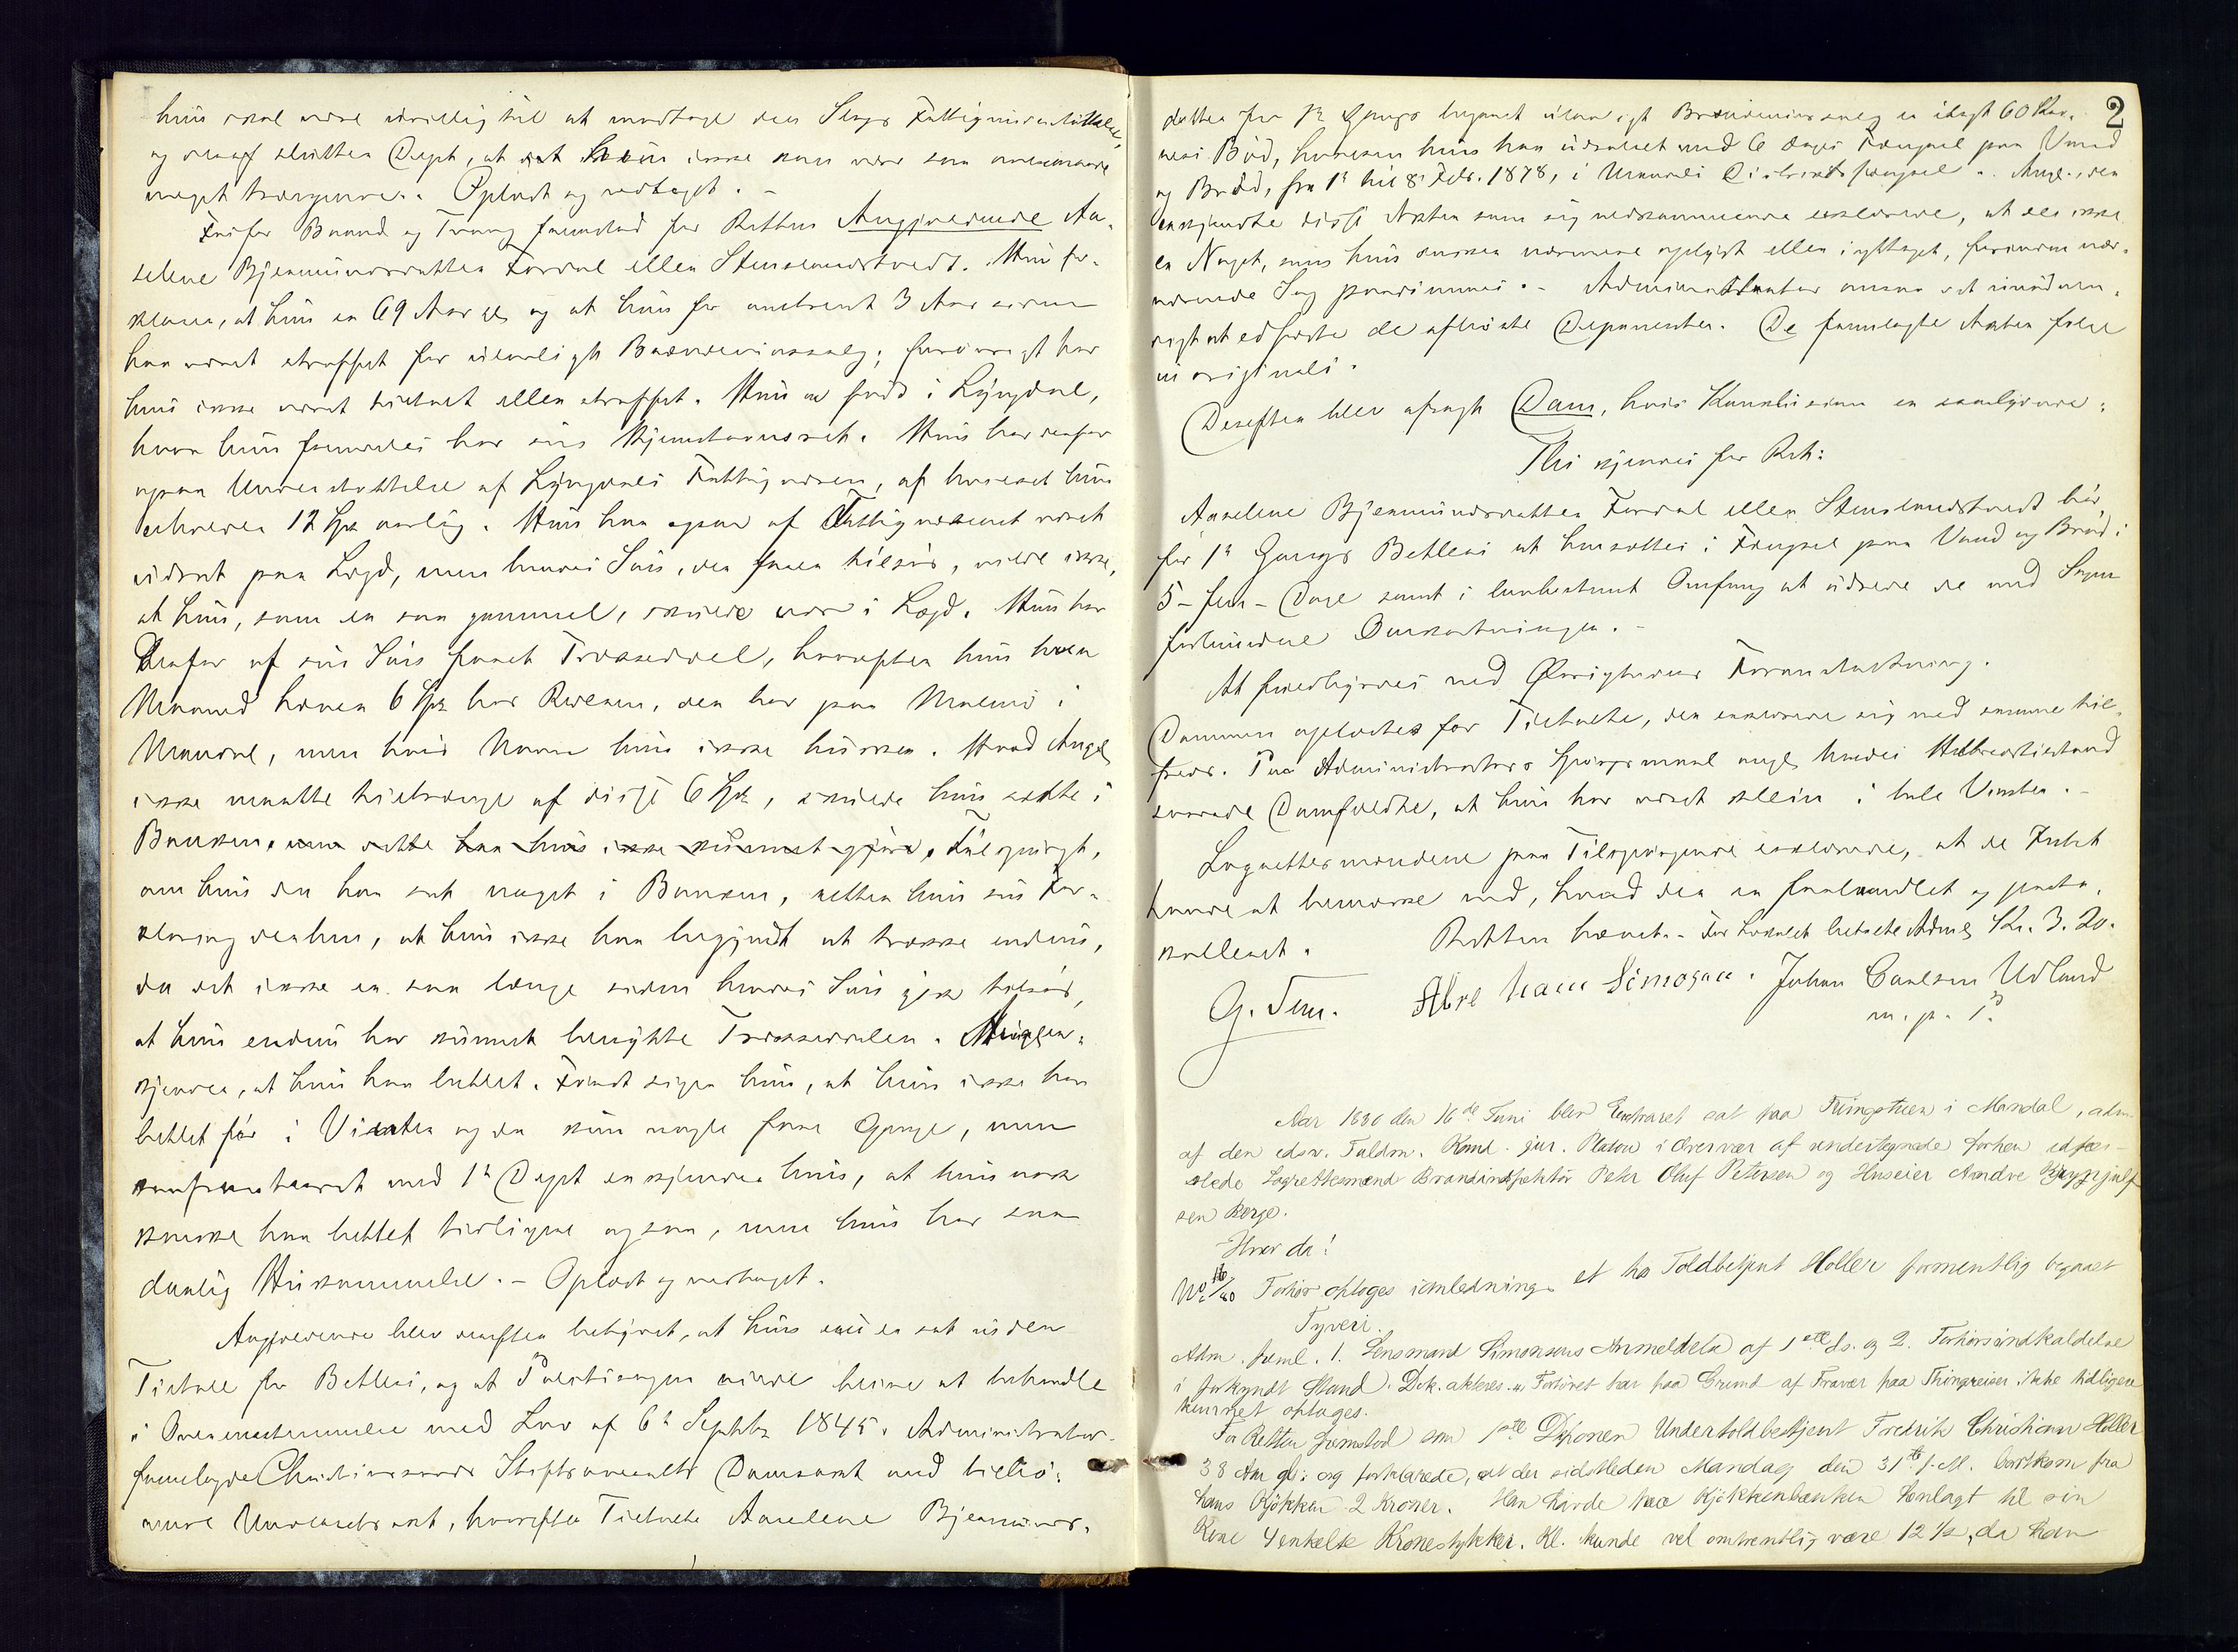 hun skal være uvillig til at modtage den Slags Fattigunderstøttelse,
og deraf slutter Dept, at det hun ikke kan være saa overmaade
meget trængende. Oplæst og vedtaget. -
Fri for Baand og Tvang fremstod for Retten Angjældende Aa-
selene Bjermundsdatter Fordal eller Stenslandstvedt. Hun for-
klarer, at hun er 69 Aar gl. og at hun for omtrent 3 Aar siden
har været straffet for ulovligt Brændevinssalg; forøvrigt har
hun ikke været tiltalt eller straffet. Hun er født i Lyngdal,
hvor hun fremdeles har sin Hjemstavnsret. Hun har derfor
ogsaa Understøttelse af Lyngdals Fattigvæsen, af hvilket hun
erholder 12 Spd. aarlig. Hun har ogsaa af Fattigvæsenet været
udsat paa Lægd, men hendes Søn, der farer tilsøs, vilde ikke,
at hun, som er saa gammel, skulde være i Lægd. Hun har
derfor af sin Søn faaet Træksedel, hvorefter hun hver
Maaned hæver 6 Spd. hos Rederen, der bor paa Malmø i
Mandal, men hvis Navn hun ikke husker. Hvad Angj.
ikke maatte tiltrænge af disse 6 Spd., skulde hun sætte i
Banken, men dette har hun ikke kunnet gjøre. Tilspurgt,
om hun da har sat noget i Banken, retter hun sin For-
klaring derhen, at hun ikke har begyndt at trække endnu,
da det ikke er saa længe siden hendes Søn gik tilsøs,
at hun endnu har kunnet benytte Træksedelen. Hun er-
kjender, at hun har betlet. Først siger hun, at hun ikke har
betlet før i Vinter og da kun nogle faa Gange, men
konfronteret med 1ste Dept erkjender hun, at hun nok
kanske har betlet tidligere ogsaa, men hun har saa
daarlig Hukommelse. - Oplæst og vedtaget.
Angjældende blev derefter betydet, at hun nu er sat under
Tiltale for Betleri, og at Politisagen vilde blive at behandle
i Overensstemmelse med Lov af 6te Septbr 1845. Administrator
fremlagde Christianssands Stiftsoverrets Domsakt med tilhø-
rende Underretsakt, hvorefter Tiltalte Aaselene Bjermunds-
2
datter for 1ste Gangs begaaet ulovligt Brændevinssalg er ilagt 60 Kro-
ners Bød, hvilken hun har udsonet med 6 Dages Fængsel paa Vand
og Brød, fra 1ste til 8de Febr. 1878, i Mandals Distriktsfængsel. Angj., der
erkjendte disse Akter som sig vedkommende erklærede, at der ikke
er Noget, som hun ønsker nærmere oplyst eller iagttaget, forinden nær-
værende Sag paadømmes. - Administrator ansaa det unødven-
digt at edfæste de afhørte Deponenter. De fremlagte Akter følge
in originali.
Derefter blev afsagt Dom, hvis Konklusion er saalydende:
Thi kjendes for Ret:
Aaselene Bjermundsdatter Fordal eller Stenslandstvedt bør
for 1ste Gangs Betleri at hensættes i Fængsel paa Vand og Brød i
5 - fem - Dage samt i lovbestemt Omfang at udrede de med Sagen
forbundne Omkostninger. -
At fuldbyrdes ved Øvrighedens Foranstaltning.
Dommen oplæstes for Tiltalte, der erklærede sig med samme til-
freds. Paa Administrators Spørgsmaal angj. hendes Helbredstilstand
svarede Domfældte, at hun har været klein i hele Vinter. -
Lagrettesmændene paa Tilspørgende erklærede, at de Intet
havde at bemærke ved, hvad der er forhandlet og proto-
kolleret. Retten hævet. - For Lokalet betalte Adms Kr. 3.20.
G. Fem. Abraham Simonsen. Johan Carlsen Udland
m. p. P.
Aar 1880 den 16de Juni blev Extraret sat paa Thingstuen i Mandal, adm.
af den edsv. Fuldm. Kand. jur. Platou i Overvær af undertegnede forhen edfæs-
stede Lagrettesmænd Brandinspektør Peter Oluf Petersen og Huseier Andre
sen Berge.
Hvor da!
No 16/80 Forhør optoges i anledning et hos Toldbetjent Holler formentlig begaaet
Tyveri.
Adm. freml. 1. Lensmand Simonsens Anmeldelse af 1ste ds. og 2. Forhørsindkaldelse
i forkyndt Stand. Dok. akteres. Forhøret har paa Grund af Fravær paa Thingreiser ikke tidligere
kunnet optages.
For Retten fremstod som 1ste Deponent Undertoldbetjent Fredrik Christian Holler
38 Aar gl. og forklarede, at der sidstleden Mandag den 31te f. M. bortkom fra
hans Kjøkken 2 Kroner. Han havde paa Kjøkkenbænken henlagt til sin
Kone 4 enkelte Kronestykker. Kl. kunde vel omtrentlig være 12 1/2, da han